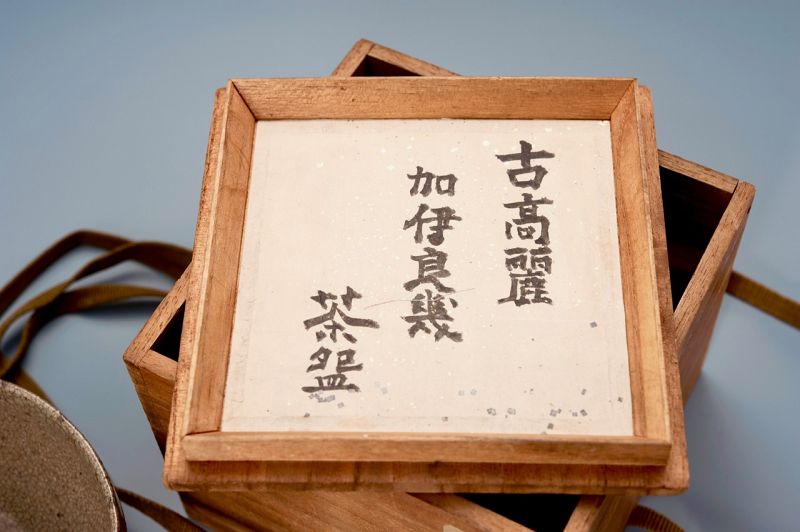 古高麗
加伊良幾
茶盌